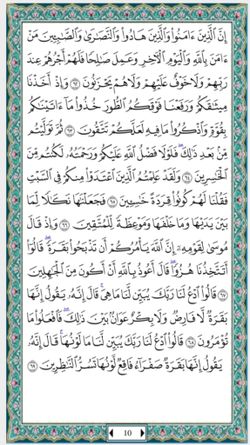 إِنَّ الَّذِينَ ءَامَنُوا وَالَّذِينَ هَادُوا وَالنَّصَٰرَىٰ وَالصَّٰبِـِٔينَ مَنْ
ءَامَنَ بِاللَّهِ وَالْيَوْمِ الْءَاخِرِ وَعَمِلَ صَٰلِحًا فَلَهُمْ أَجْرُهُمْ عِندَ
رَبِّهِمْ وَلَا خَوْفٌ عَلَيْهِمْ وَلَا هُمْ يَحْزَنُونَ ٦٢ وَإِذْ أَخَذْنَا
مِيثَٰقَكُمْ وَرَفَعْنَا فَوْقَكُمُ الطُّورَ خُذُوا مَا ءَاتَيْنَٰكُم
بِقُوَّةٍ وَاذْكُرُوا مَا فِيهِ لَعَلَّكُمْ تَتَّقُونَ ٦٣ ثُمَّ تَوَلَّيْتُم
مِّنۢ بَعْدِ ذَٰلِكَ ۖ فَلَوْلَا فَضْلُ اللَّهِ عَلَيْكُمْ وَرَحْمَتُهُ لَكُنتُم مِّنَ
الْخَٰسِرِينَ ٦٤ وَلَقَدْ عَلِمْتُمُ الَّذِينَ اعْتَدَوْا مِنكُمْ فِي السَّبْتِ
فَقُلْنَا لَهُمْ كُونُوا قِرَدَةً خَٰسِـِٔينَ ٦٥ فَجَعَلْنَٰهَا نَكَٰلًا لِّمَا
بَيْنَ يَدَيْهَا وَمَا خَلْفَهَا وَمَوْعِظَةً لِّلْمُتَّقِينَ ٦٦ وَإِذْ قَالَ
مُوسَىٰ لِقَوْمِهِ إِنَّ اللَّهَ يَأْمُرُكُمْ أَن تَذْبَحُوا بَقَرَةً ۖ قَالُوا
أَتَتَّخِذُنَا هُزُوًا ۖ قَالَ أَعُوذُ بِاللَّهِ أَنْ أَكُونَ مِنَ الْجَٰهِلِينَ
٦٧ قَالُوا ادْعُ لَنَا رَبَّكَ يُبَيِّن لَّنَا مَا هِيَ ۚ قَالَ إِنَّهُ يَقُولُ إِنَّهَا
بَقَرَةٌ لَّا فَارِضٌ وَلَا بِكْرٌ عَوَانٌۢ بَيْنَ ذَٰلِكَ ۖ فَافْعَلُوا مَا
تُؤْمَرُونَ ٦٨ قَالُوا ادْعُ لَنَا رَبَّكَ يُبَيِّن لَّنَا مَا لَوْنُهَا ۚ قَالَ إِنَّهُ
يَقُولُ إِنَّهَا بَقَرَةٌ صَفْرَآءُ فَاقِعٌ لَّوْنُهَا تَسُرُّ النَّٰظِرِينَ ٦٩
10